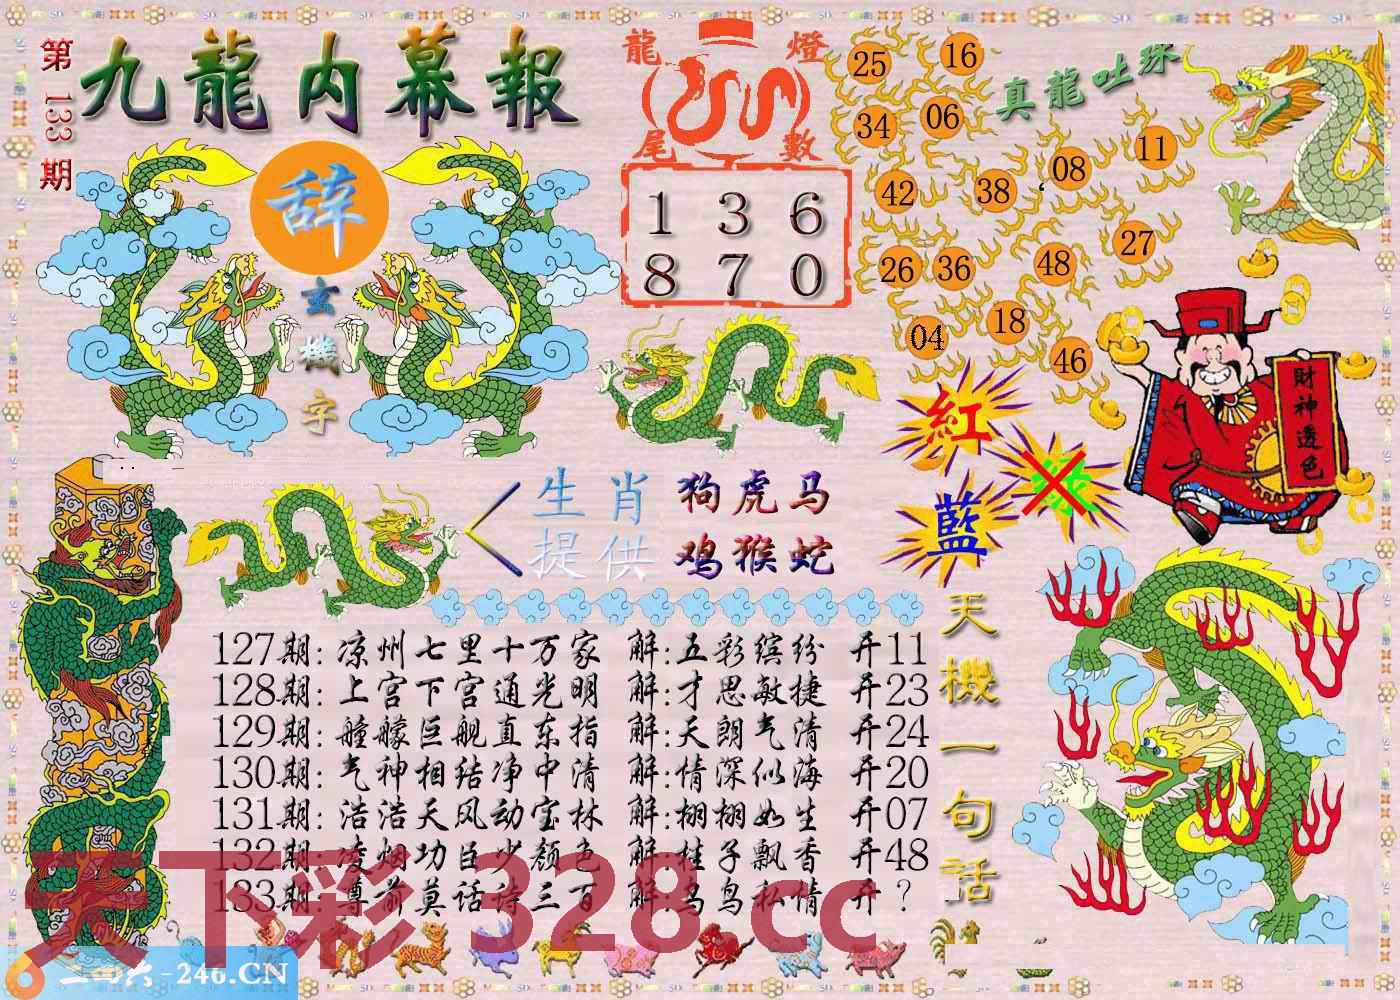 第133期
九龍内幕報
辞
玄機字
龍燈
尾數
1 3 6
8 7 0
真龍吐珠
25 16
34 06
42 38 08 11
26 36 48 27
04 18 46
財神透色
紅
藍
生肖 狗虎马
提供 鸡猴蛇
天機一句話
127期: 凉州七里十万家 解:五彩缤纷 开11
128期: 上宫下宫通光明 解:才思敏捷 开23
129期: 艟艨巨舰直东指 解:天朗气清 开24
130期: 气神相结净中清 解:情深似海 开20
131期: 浩浩天风动宝林 解:栩栩如生 开07
132期: 凌烟功臣少颜色 解:桂子飘香 开48
133期: 尊前莫话诗三百 解:乌鸟私情 开?
天下彩 328.cc
二四六-246.CN